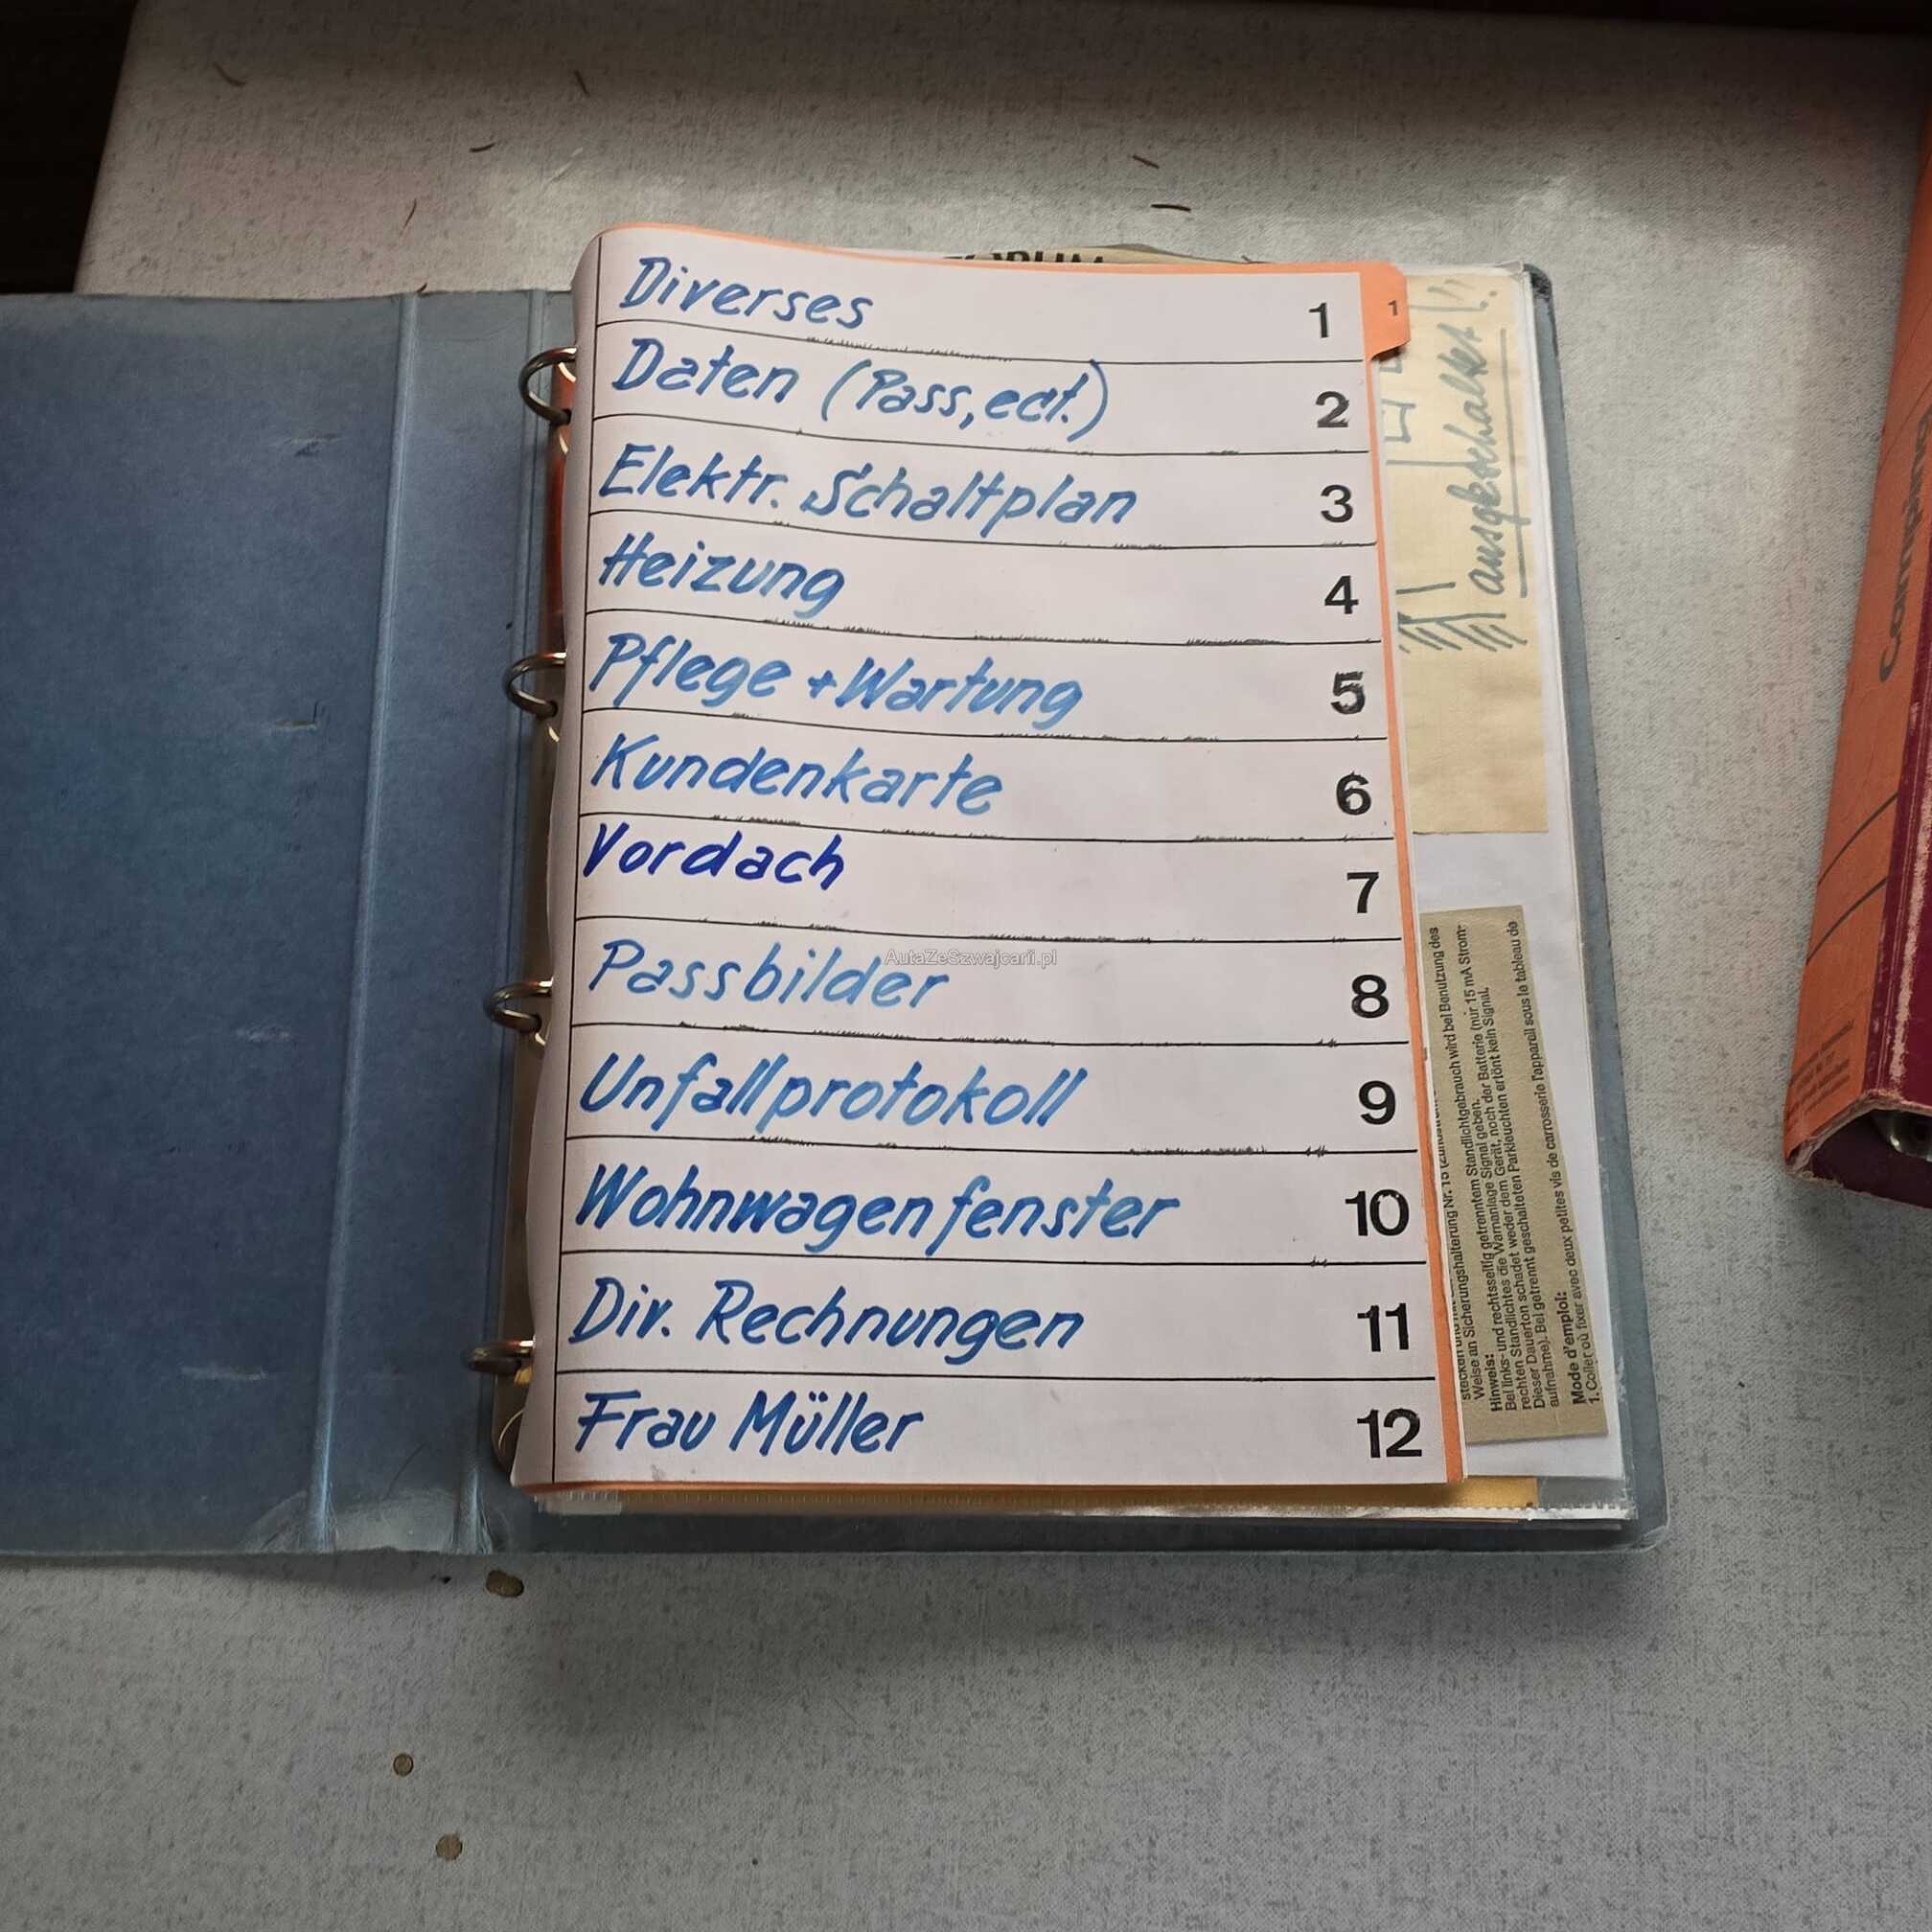 Diverses 1
1
Daten (Pass, ect.) 2
Elektr. Schaltplan 3
Heizung 4
Pflege + Wartung 5
Kundenkarte 6
Vordach 7
AutaZeSzwajcarii.pl
Passbilder 8
Unfallprotokoll 9
Wohnwagenfenster 10
Div. Rechnungen 11
Frau Müller 12
Weise an Sicherungshalterung Nr. 15
Hinweis:
Bei links- und rechtsseitig getrenntem Standlichtgebrauch wird bei Benutzung des
rechten Standlichtes die Warnanlage Signal geben.
Dieser Dauerton schadet weder dem Gerät, noch der Batterie (nur 15 mA Strom-
aufnahme). Bei getrennt geschalteten Parkleuchten ertönt kein Signal.
Mode d'emploi:
1. Coller où fixer avec deux petites vis de carrosserie l'appareil sous le tableau de